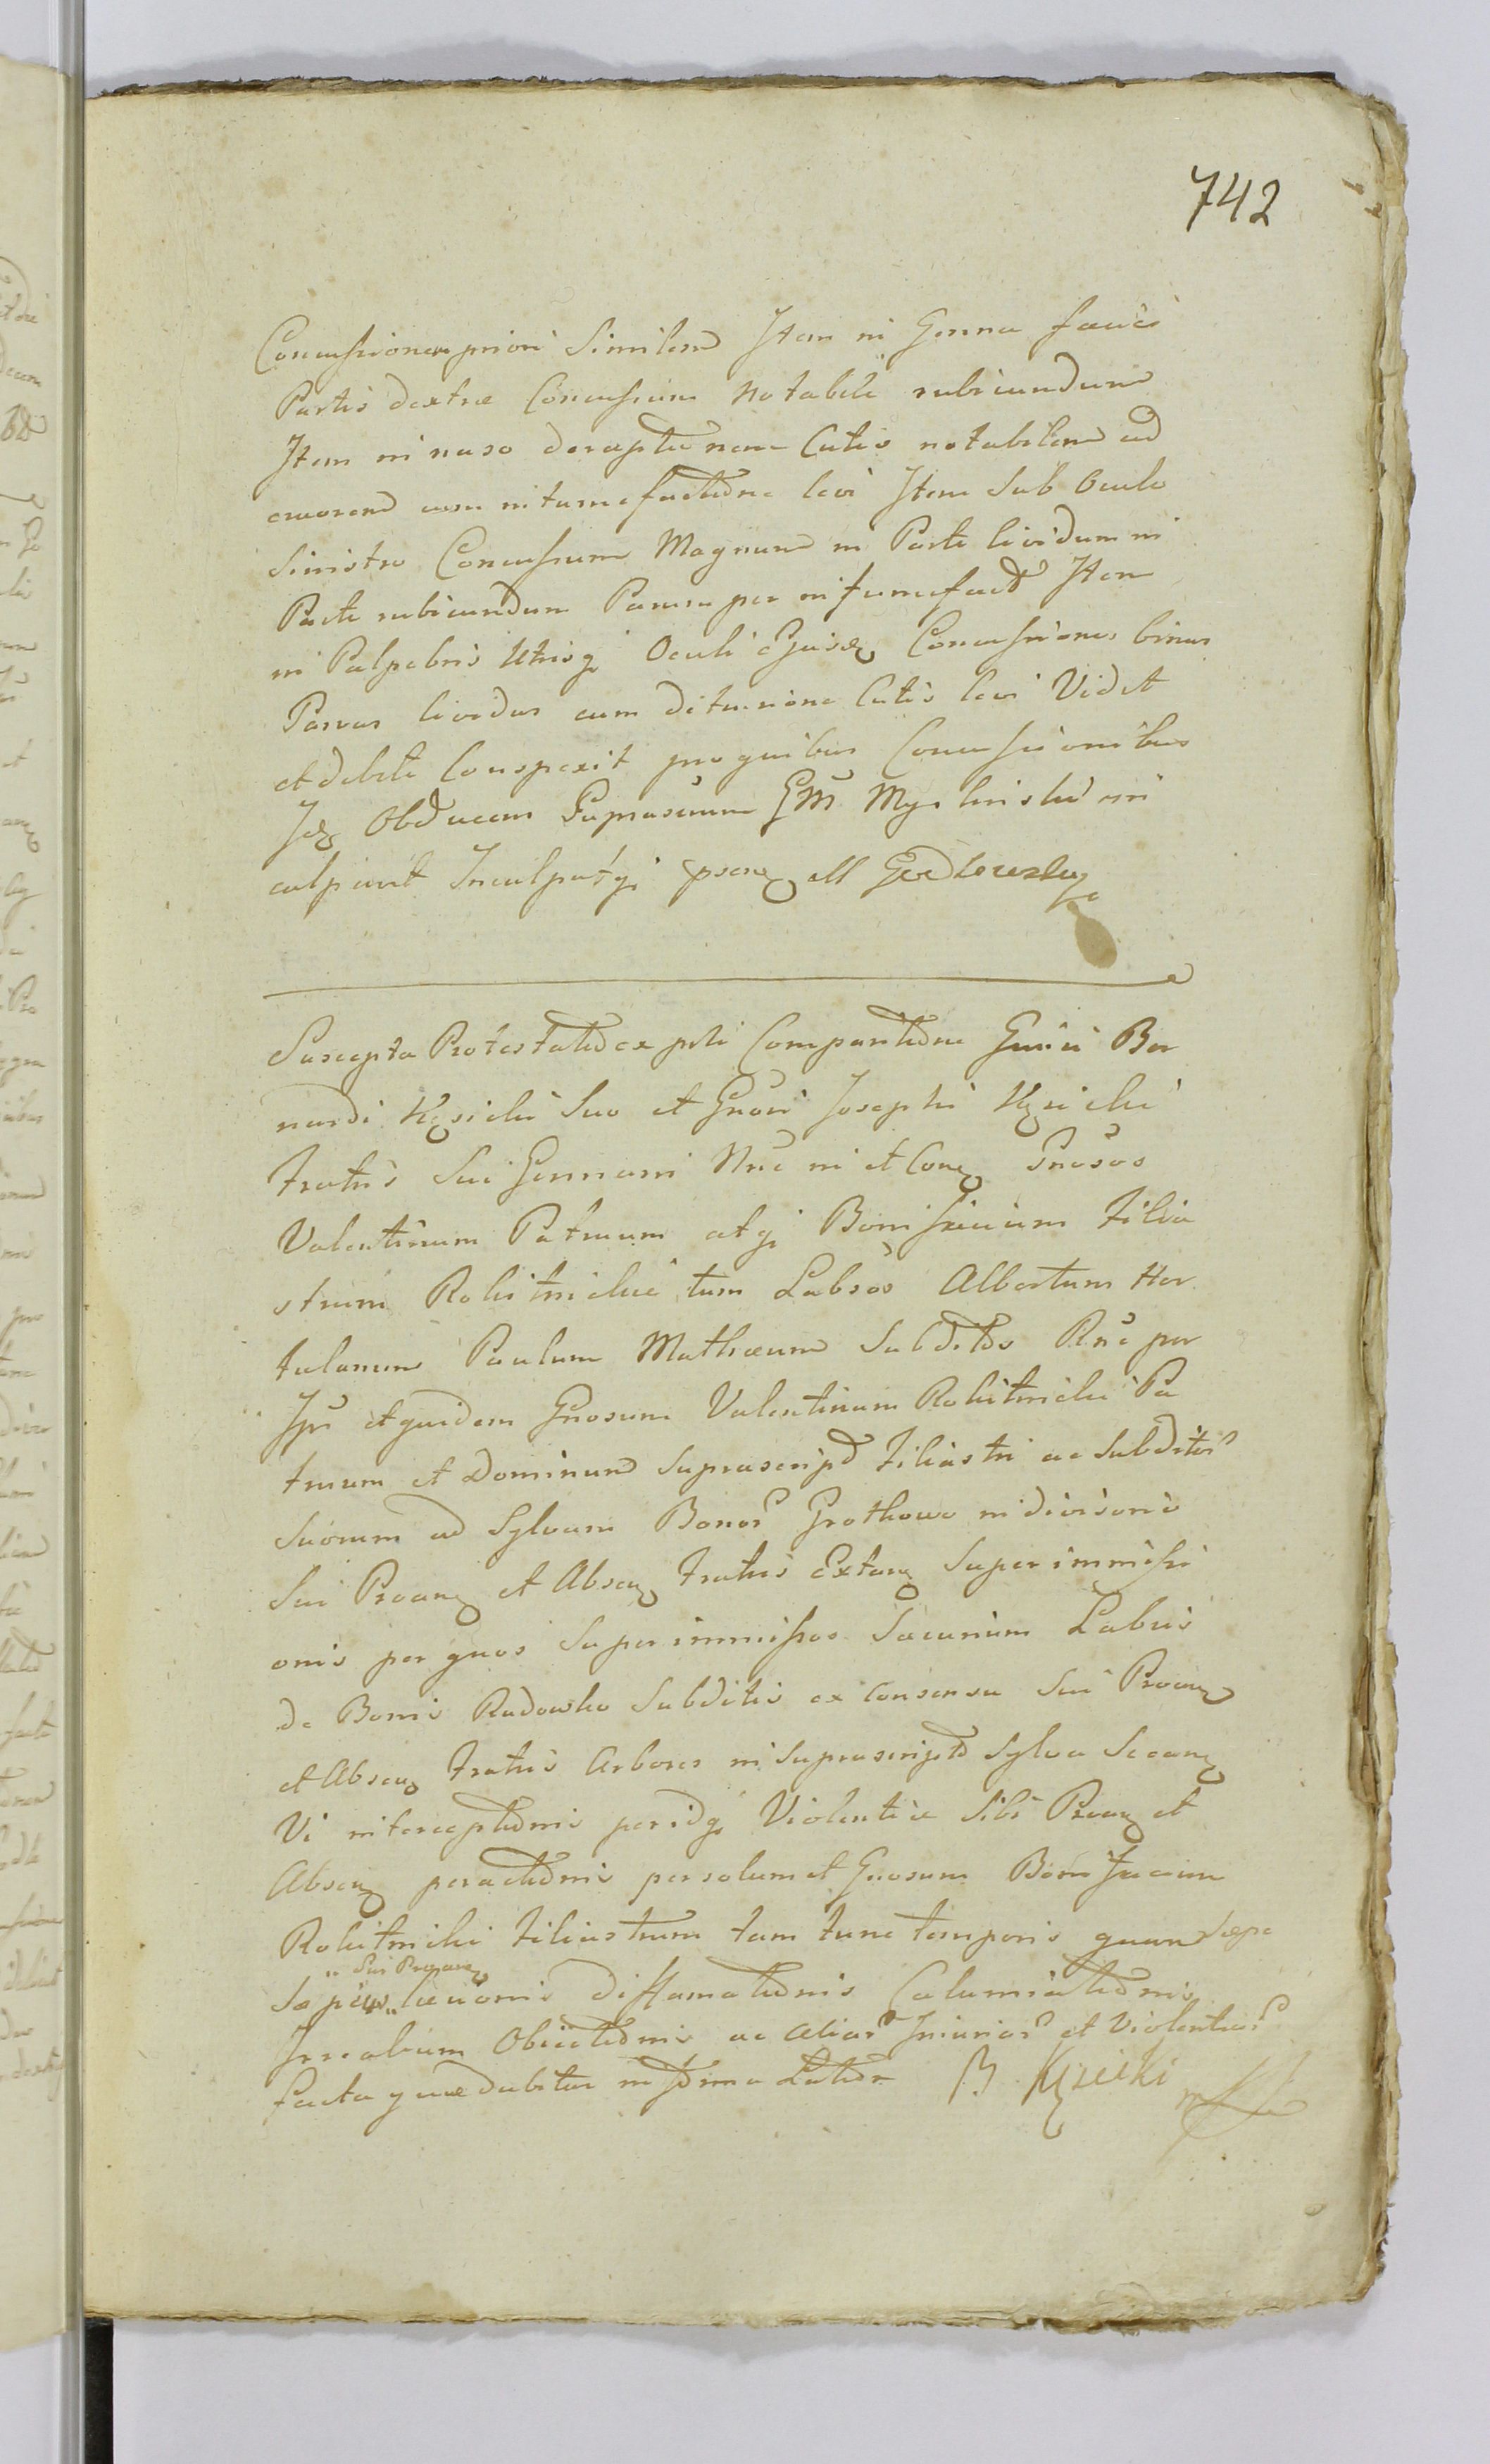 742
Concussionem priori Similem Item in Genna faciei
Partis dextræ Concussum notabile rubicundum
Item in naso derupturem Cutis notabilem ad
cruorem cum intumefactõne levi Item Sub Oculo
Sinistro Concussum Magnum in Parte lividum in
Parte rubicundum Parum per intumefact Item
in Palpebris Utriusq Oculi Ejusd Concussiones binas
Parvas lividas cum Cutis levi Vidit
et debite Conspexit pro quibus Concussionibus
Id Obducem Suprascum GM Myslinski in
culpavit Inculpatq præs M Godlewsky
Suscepta Protestatio ex psti Comparitõne Gnrsi Ber
nardi Kęsicki Suo et Gnosi Josephi Kęsicki
Fratris Sui Germani Nne in et Con Gnosos
Valentinum Patruum atq Bonifacium Filia
strum Rokitnickie tum Labsos Albertum Hor
tulanum Paulum Mathæum Subditos Rne per
Ips et quidem Gnosum Valentinum Rokitnicki Pa
truum et Dominum Suprascript Filiastri ac Subditor
Suorum ad Sylvam Bonor Grotkowo indivisorie
Sui Prean et Absen Fratris Extan Superimmissi
onis per quos Superimmissos Securium Labriis
de Bonis Radowko Subditis ex Consensu Sui Prean
et Absen Fratris Arbores in Suprascripta Sylva Secan
Vi interceptõnis peridq Violentiæ Sibi Prean et
Absen peractõnis per solum et Gnosum Bonifacium
Rokitnicki Filiastrum tam tunc temporis quam sæpe
Sui Prean
Sæpius læsionis Diffamatõnis Calumniatõnis
Irrealium Obiectõnis ac Aliar Iniuriar et Violentiar
facta quæ dabitur in Forma Latior B. Kęsicki mp